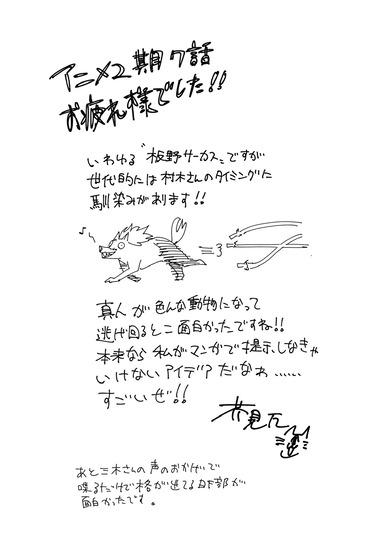 アニメ2期17話
お疲れ様でした!!
いわゆる"板野サーカス"ですが
世代的には村木さんのタイミングに
馴染みがあります!!
真人が色んな動物になって
逃げ回るとこ面白かったですね!!
本来なら私がマンガで提示しなきゃ
いけないアイデアだなぁ……
すごいぜ!!
芥見下々
あと三木さんの声のおかげで
喋るだけで格が上がる日下部が
面白かったです。